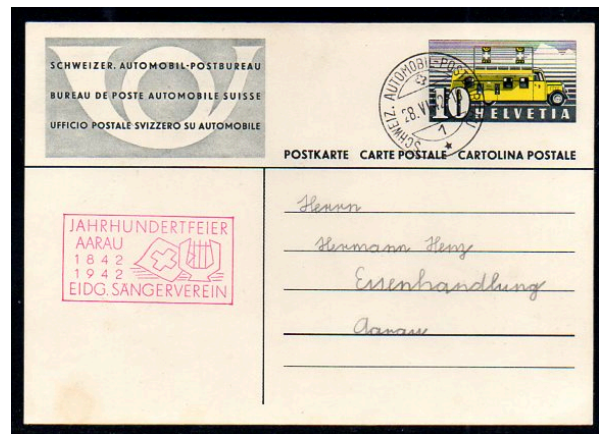 SCHWEIZER. AUTOMOBIL-POSTBUREAU
BUREAU DE POSTE AUTOMOBILE SUISSE
UFFICIO POSTALE SVIZZERO SU AUTOMOBILE
SCHWEIZ. AUTOMOBIL-POST
28.VI.
1
10 HELVETIA
POSTKARTE CARTE POSTALE CARTOLINA POSTALE
JAHRHUNDERTFEIER
AARAU
1842
1942
EIDG. SÄNGERVEREIN
Herrn
Hermann Henz
Eisenhandlung
Aarau